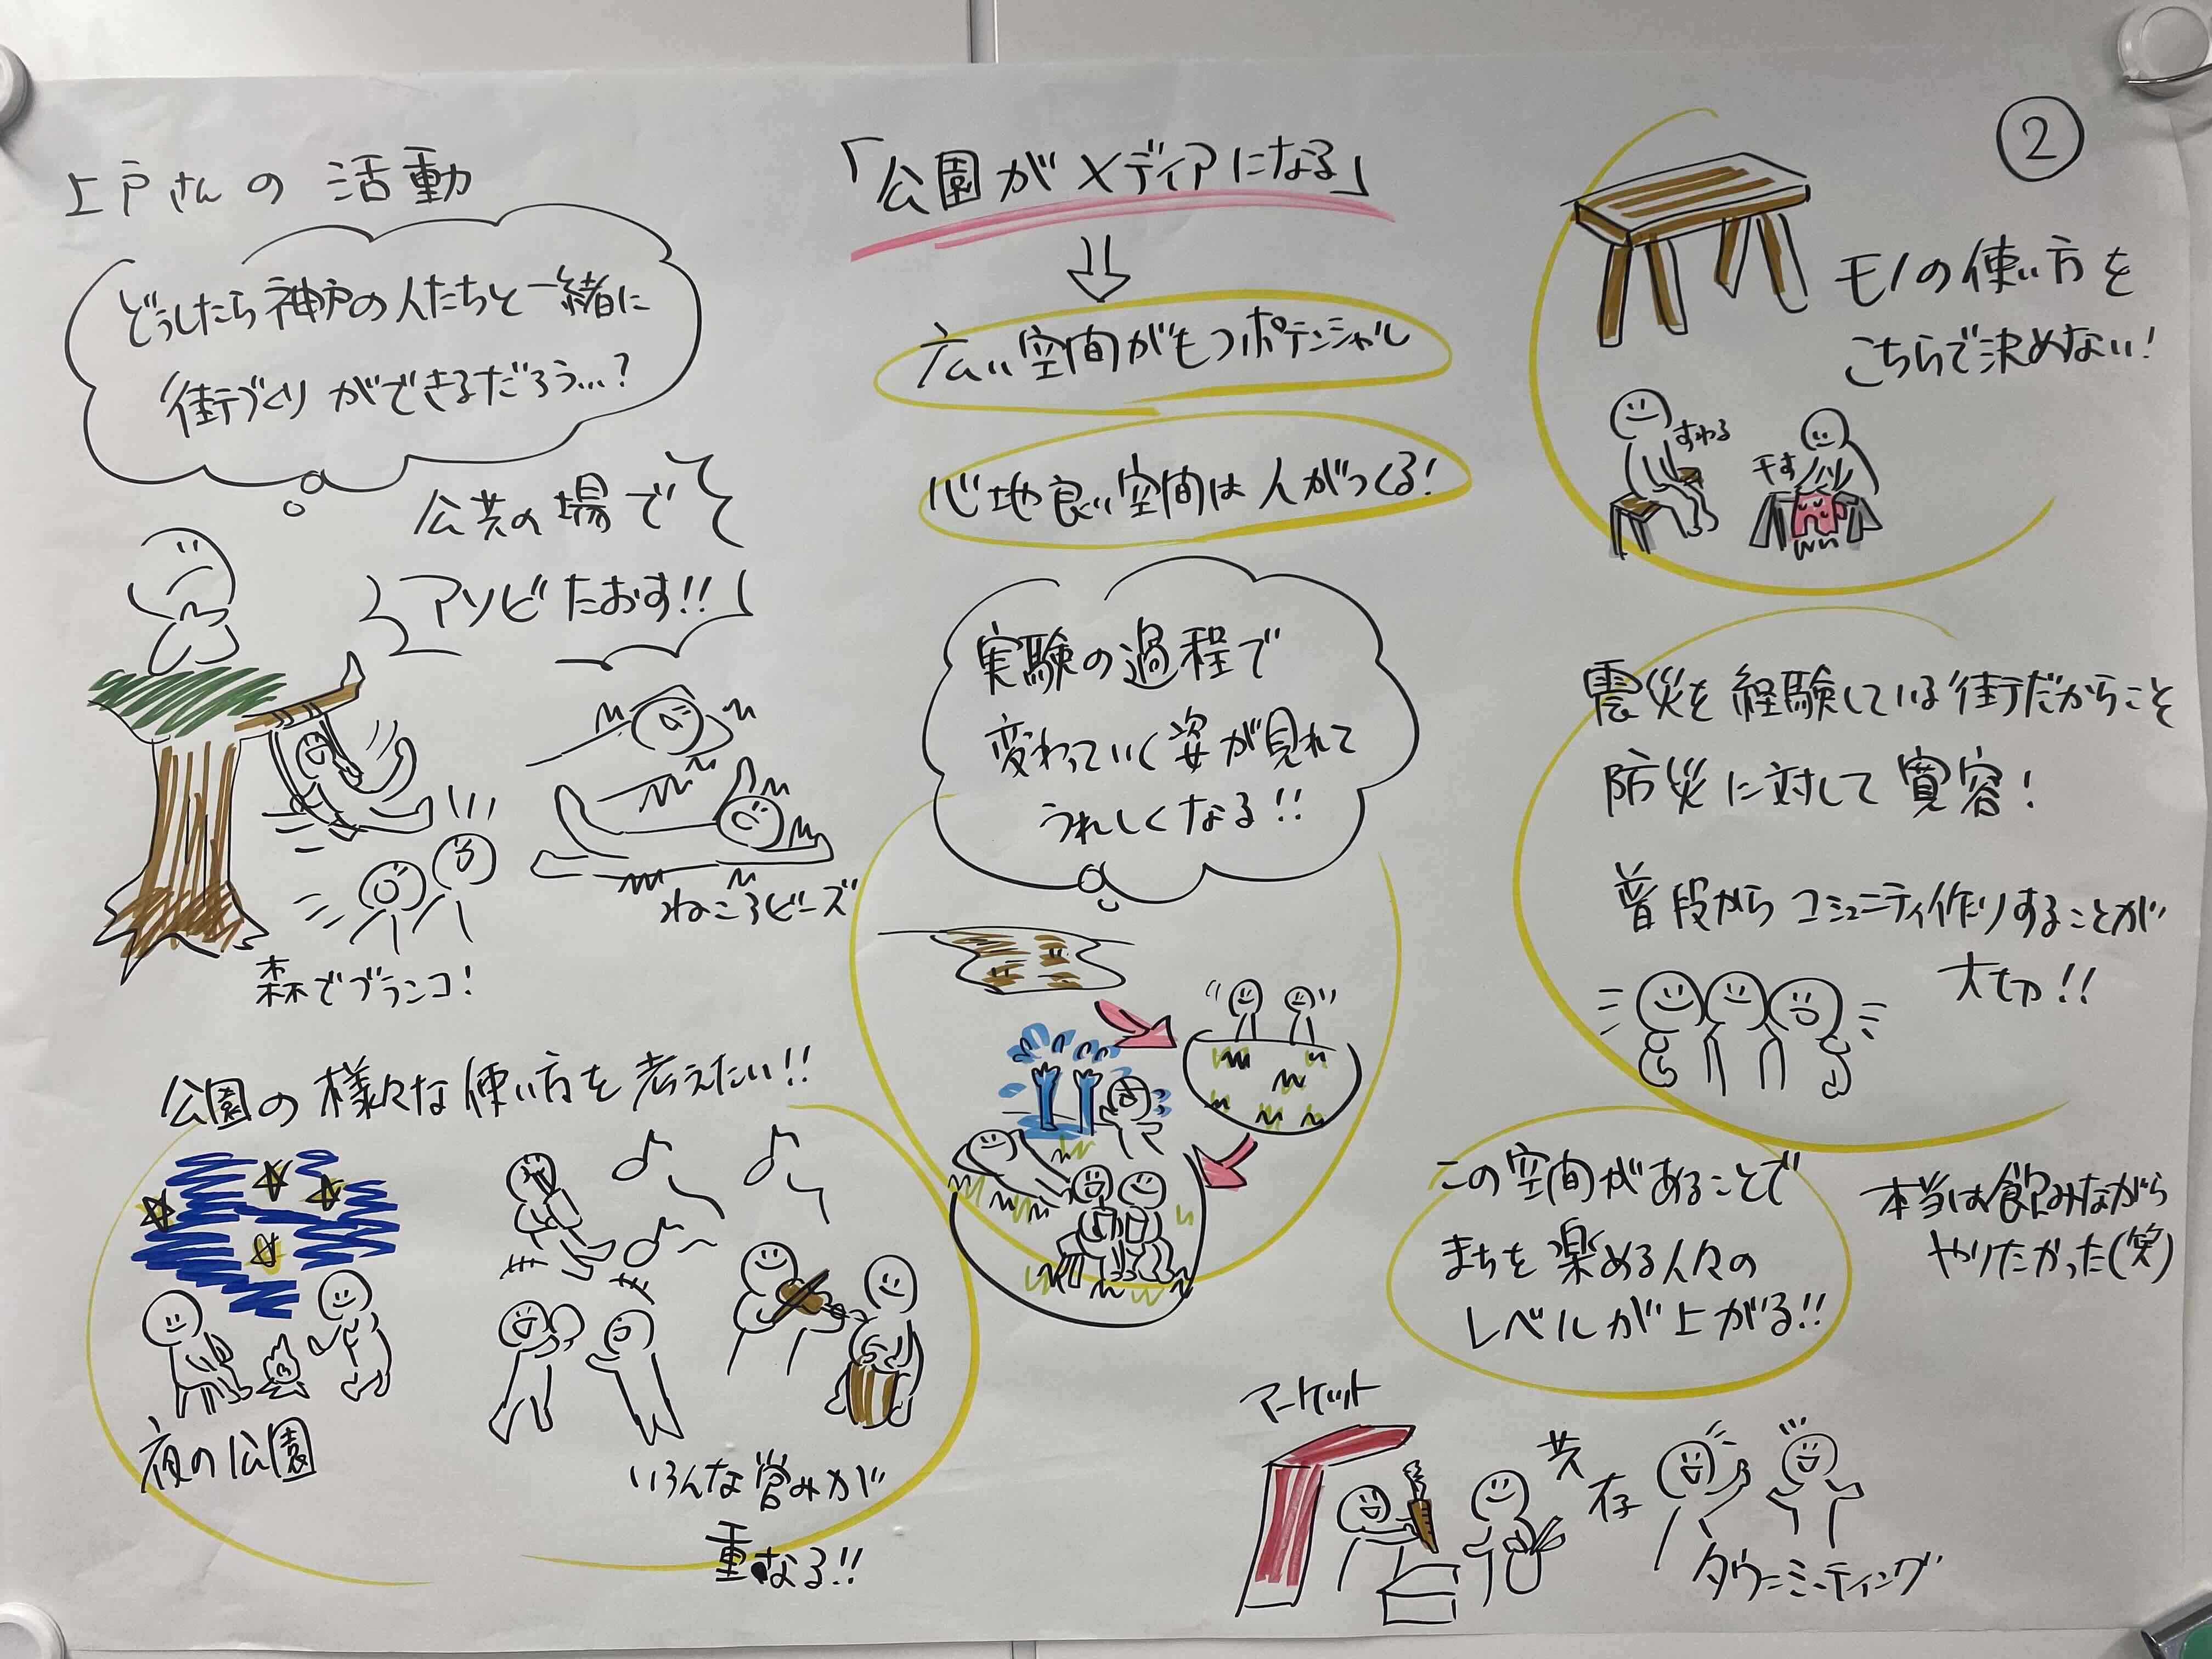 上戸さんの活動
どうしたら神戸の人たちと一緒に
街づくりができるだろう…?
公共の場で
アソビたおす!!
森でブランコ!
ねころビーズ
公園の様々な使い方を考えたい!!
夜の公園
いろんな営みが
重なる!!
「公園がメディアになる」
⇓
広い空間がもつポテンシャル
心地良い空間は人がつくる!
実験の過程で
変わっていく姿が見れて
うれしくなる!!
②
モノの使い方を
こちらで決めない!
すわる
干す
震災を経験している街だからこそ
防災に対して寛容!
普段からコミュニティ作りすることが
大切!!
この空間があることで
まちを楽める人々の
レベルが上がる!!
本当は飲みながら
やりたかった(笑)
マーケット
共存
タウンミーティング